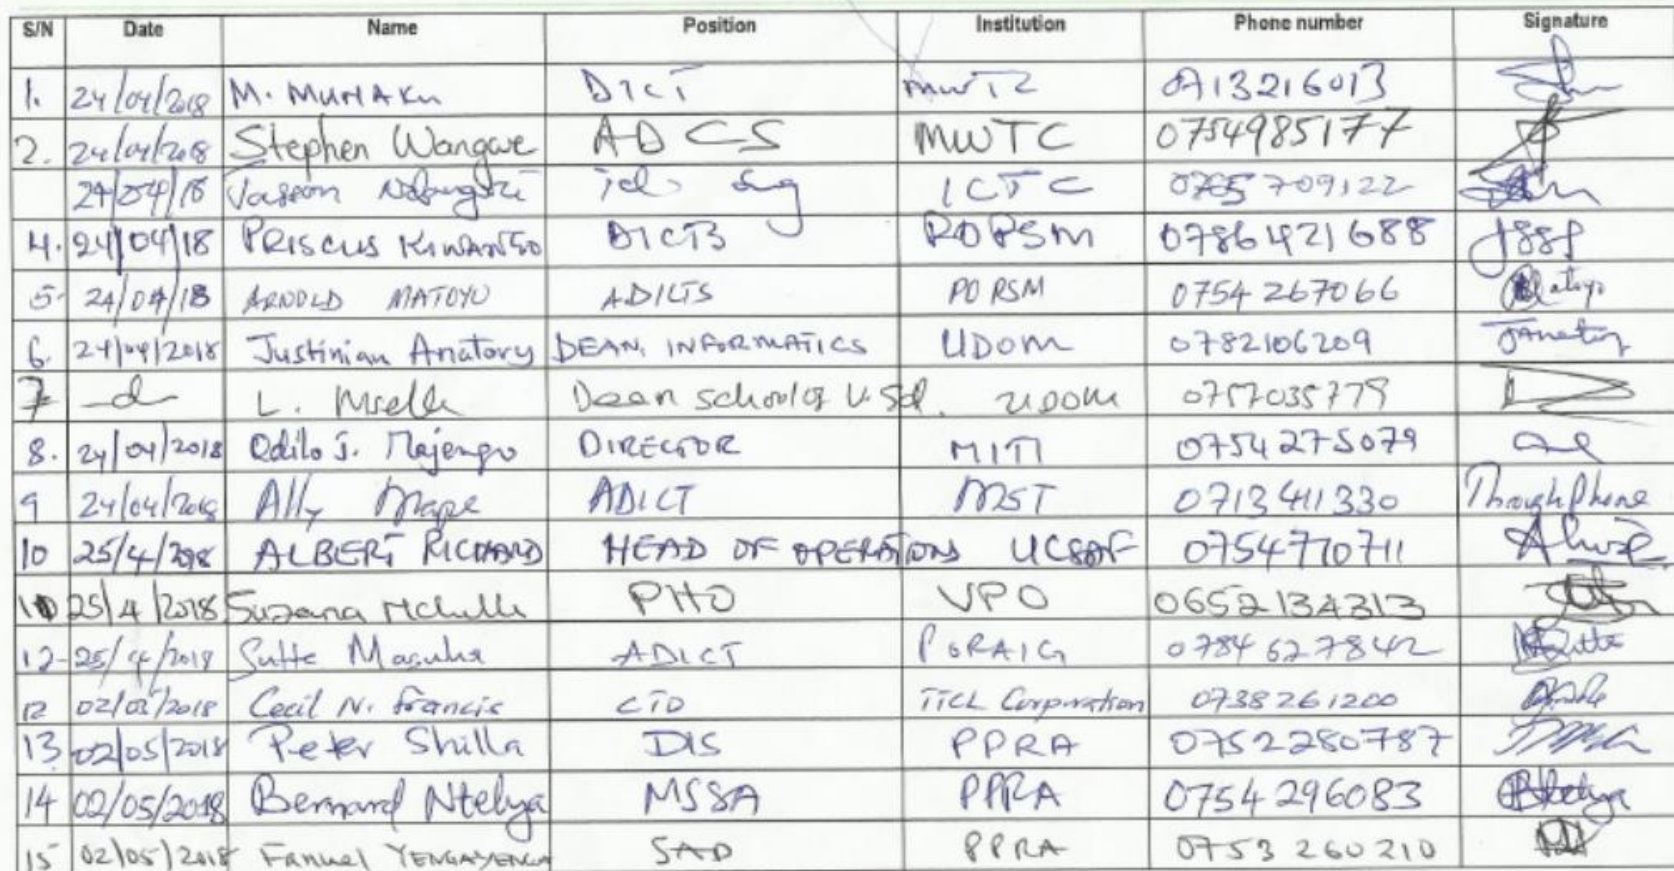 S/N Date Name Position Institution Phone number Signature
1. 24/04/2018 M. MUNAKU DICT 0713216013
2. 24/04/2018 Stephen Wangwe ADCS MWTC 0754985177
24/04/18 ICTC 0765709122
4. 24/04/18 PRISCUS KIWANGO DICTS POPSM 0786421688
5. 24/04/18 ARNOLD MATOYO ADICTS POPSM 0754 267066 Matoyo
6. 24/04/2018 Justinian Anatory DEAN, INFORMATICS UDOM 0782106209 JAnatory
7 L. Mselle Dean School of V. Sd. UDOM 0757035779
8. 24/04/2018 Odilo J. Majengo DIRECTOR MITI 0754275079
9 24/04/2018 Ally Mape ADICT 0713411330 Through Phone
10 25/4/2018 ALBERT RICHARD HEAD OF OPERATIONS UCSAF 0754770711
25/4/2018 Suzana Mchulle PHO VPO 0652134313
12 25/4/2018 Sutte Masuha ADICT PORALG 0784627842
12 02/05/2018 Cecil N. Francis CTO TTCL Corporation 0738261200
13 02/05/2018 Peter Shilla DIS PPRA 0752280787
14 02/05/2018 Bernard Ntelya MSSA PPRA 0754296083
15 02/05/2018 FANUEL YENGAYENGA SAD PPRA 0753 260210